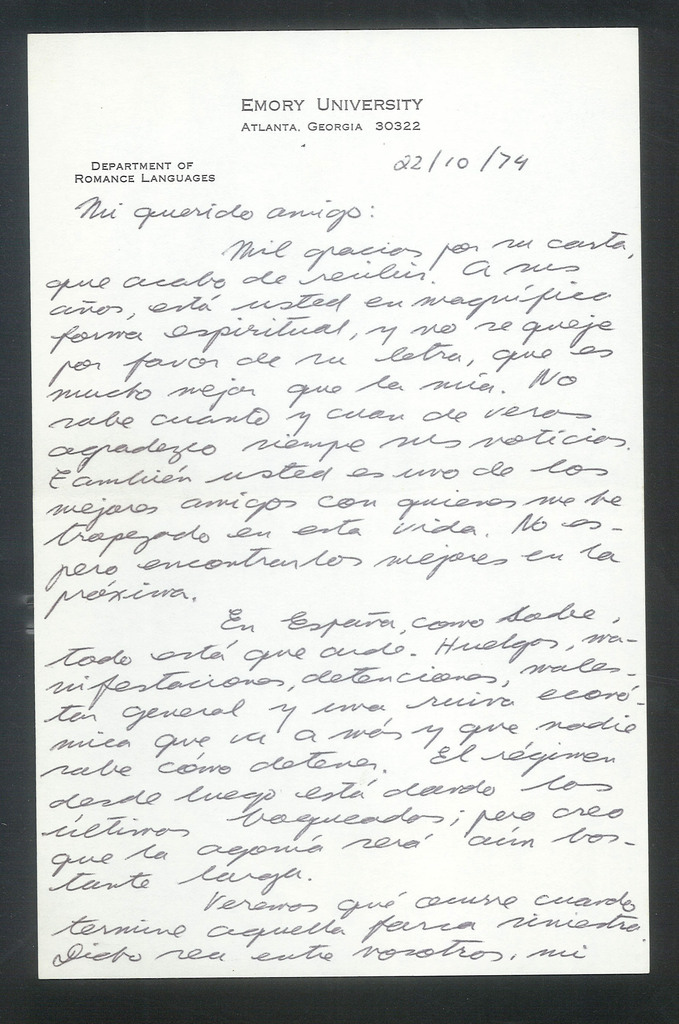 EMORY UNIVERSITY
ATLANTA, GEORGIA 30322
DEPARTMENT OF
ROMANCE LANGUAGES
22/10/74
Mi querido amigo:
Mil gracias por su carta,
que acabo de recibir. A sus
años, está usted en magnífica
forma espiritual, y no se queje
por favor de su letra, que es
mucho mejor que la mía. No
sabe cuanto y cuan de veras
agradezco siempre sus noticias.
También usted es uno de los
mejores amigos con quienes me he
tropezado en esta vida. No es-
pero encontrarlos mejores en la
próxima.
En España, como sabe,
todo está que arde. Huelgas, ma-
nifestaciones, detenciones, males-
tar general y una ruina econó-
mica que va a más y que nadie
sabe cómo detener. El régimen
desde luego está dando las
últimas boqueadas; pero creo
que la agonía será aún bas-
tante larga.
Veremos qué ocurre cuando
termine aquella farsa siniestra.
Dicho sea entre nosotros, mi